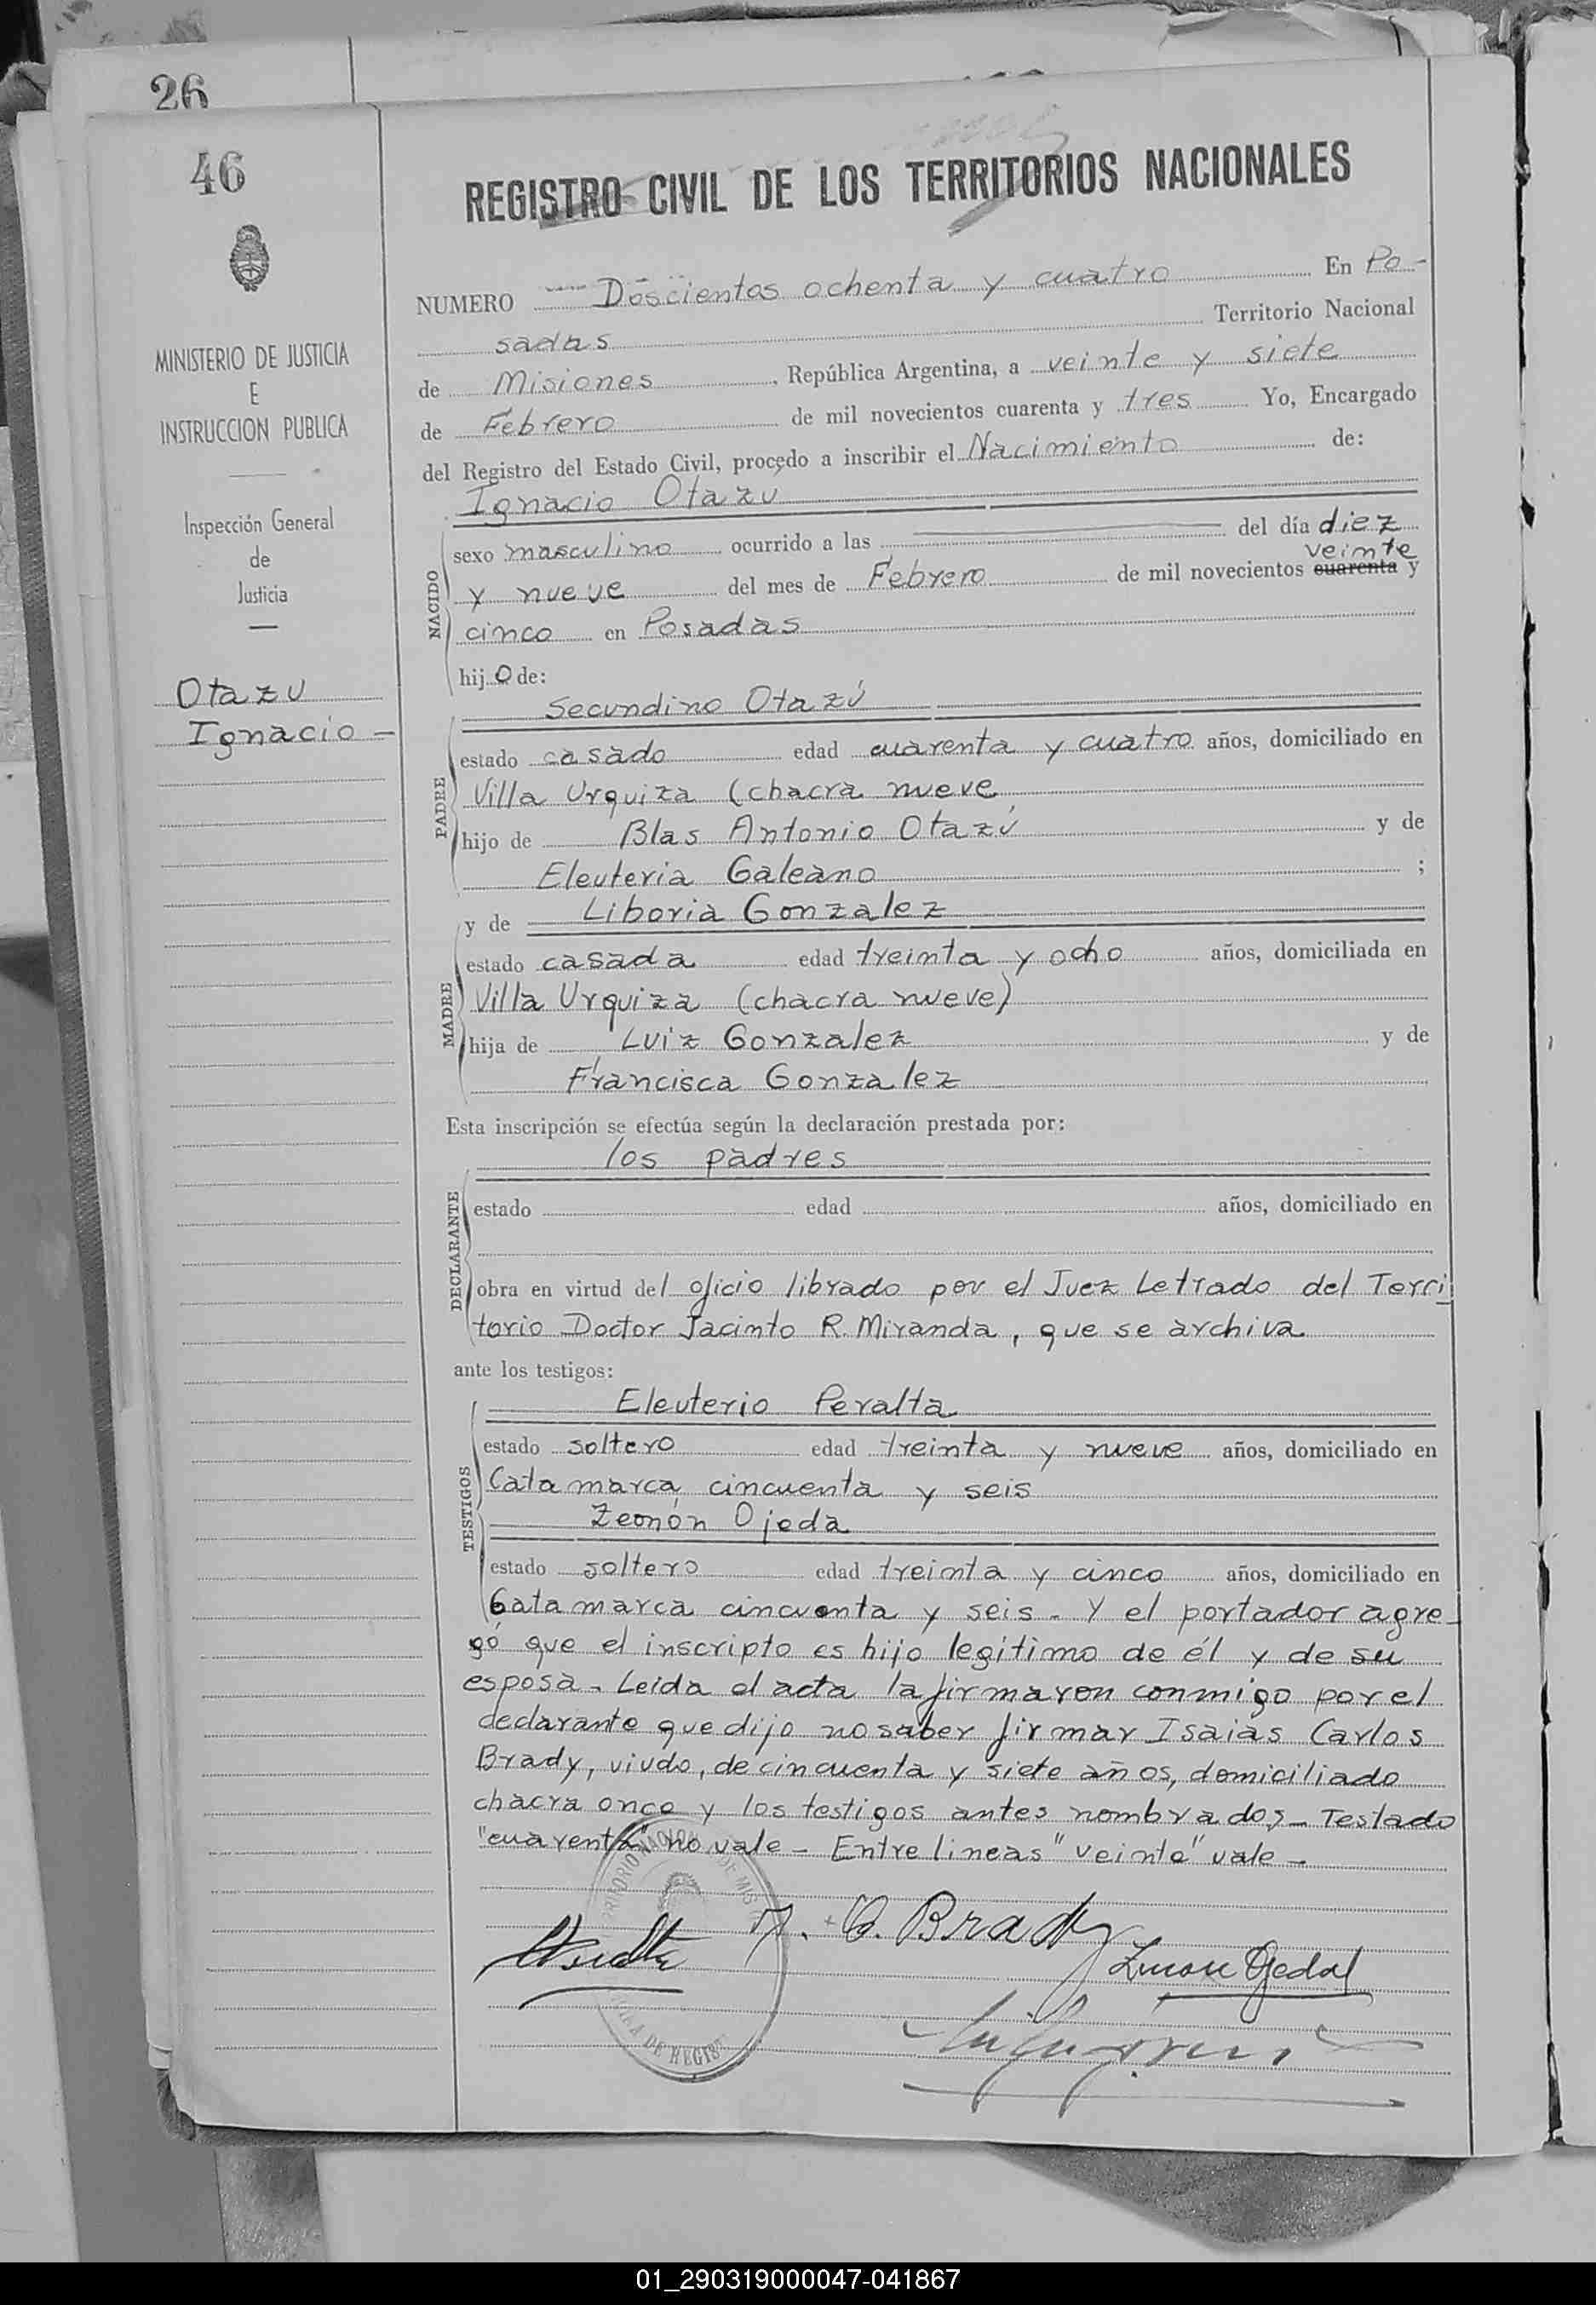 26
46
REGISTRO CIVIL DE LOS TERRITORIOS NACIONALES
MINISTERIO DE JUSTICIA
E
INSTRUCCION PUBLICA
Inspección General
de
Justicia
Otazu
Ignacio -
NUMERO Doscientos ochenta y cuatro En Po-
sadas Territorio Nacional
de Misiones, República Argentina, a veinte y siete
de Febrero de mil novecientos cuarenta y tres Yo, Encargado
del Registro del Estado Civil, procedo a inscribir el Nacimiento de:
Ignacio Otazú
NACIDO
sexo masculino ocurrido a las del día diez
veinte
y nueve del mes de Febrero de mil novecientos cuarenta y
cinco en Posadas
hijo de:
Secundino Otazú
PADRE
estado casado edad cuarenta y cuatro años, domiciliado en
Villa Urquiza (chacra nueve
hijo de Blas Antonio Otazú y de
Eleuteria Galeano ;
y de Liboria Gonzalez
MADRE
estado casada edad treinta y ocho años, domiciliada en
Villa Urquiza (chacra nueve)
hija de Luiz Gonzalez y de
Francisca Gonzalez
Esta inscripción se efectúa según la declaración prestada por:
los padres
DECLARANTE
estado edad años, domiciliado en
obra en virtud del oficio librado por el Juez Letrado del Terri
torio Doctor Jacinto R. Miranda, que se archiva
ante los testigos:
Eleuterio Peralta
TESTIGOS
estado soltero edad treinta y nueve años, domiciliado en
Catamarca cincuenta y seis
Zeonón Ojeda
estado soltero edad treinta y cinco años, domiciliado en
Catamarca cincuenta y seis. Y el portador agre-
gó que el inscripto es hijo legítimo de él y de su
esposa. Leida el acta la firmaron conmigo por el
declarante que dijo no saber firmar Isaias Carlos
Brady, viudo, de cincuenta y siete años, domiciliado
chacra once y los testigos antes nombrados - Testado
"cuarenta" no vale - Entre lineas "veinte" vale -
Brady
DE REGIST
01_290319000047-041867